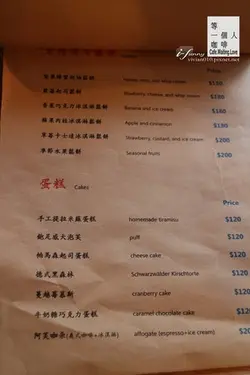 等一個人咖啡
Cafe.Waiting Love
i-Funny
vivian010.pixnet.net
Price
$180
blueberry cheese, and whip cream $180
香蕉巧克力冰淇淋鬆餅 Banana and ice cream $160
蘋果肉桂冰淇淋鬆餅 Apple and cinnamon $180
草莓卡士達冰淇淋鬆餅 Strawberry, custard, and ice cream $200
季節水果鬆餅 Seasonal fruits $200
蛋糕 Cakes
Price
手工提拉米蘇蛋糕 homemade tiramisu $120
鮑尼威大泡芙 puff $120
帕馬森起司蛋糕 cheese cake $120
德式黑森林 Schwarzwälder Kirschtorte $120
蔓越莓慕斯 cranberry cake $120
牛奶糖巧克力蛋糕 caramel chocolate cake $120
阿芙加朵(義式咖啡+冰淇淋) affogate (espresso+ice cream) $120